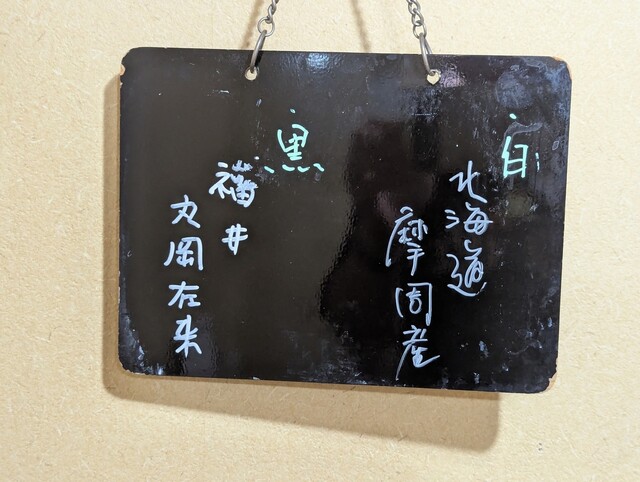 白
北海道
摩周産
黒
福井
丸岡在来